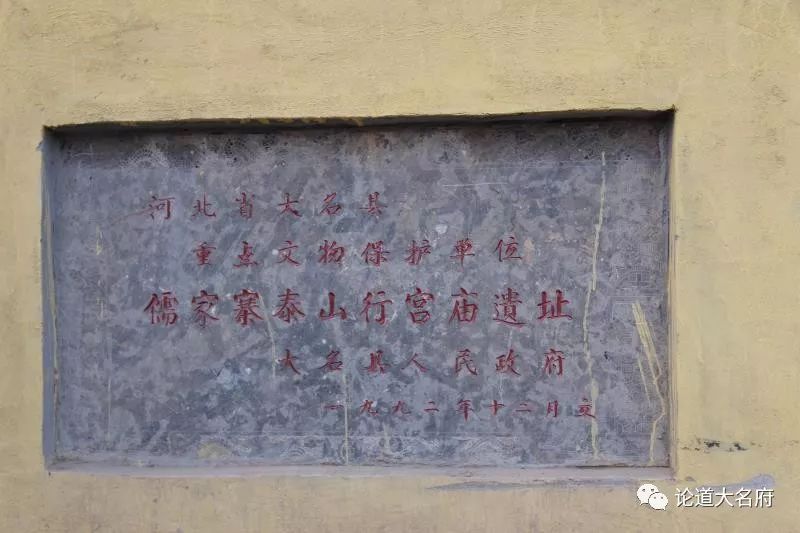 河北省大名县
重点文物保护单位
儒家寨泰山行宫庙遗址
大名县人民政府
一九九二年十二月立
论道大名府